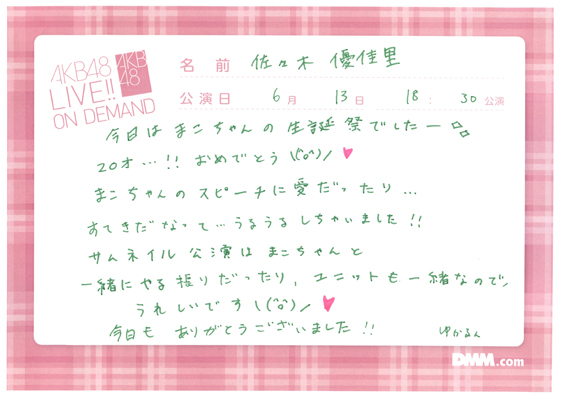 AKB48
LIVE!!
ON DEMAND
AKB
48
名 前 佐々木 優佳里
公演日 6月 13日 18:30公演
今日は まこちゃんの 生誕祭でしたー
20才…!! おめでとう \(^o^)/
まこちゃんのスピーチに愛だったり…
すてきだなって…うるうるしちゃいました!!
サムネイル公演は まこちゃんと
一緒にやる振りだったり、ユニットも一緒なので、
うれしいです \(^o^)/
今日も ありがとうございました!!
ゆかるん
DMM.com